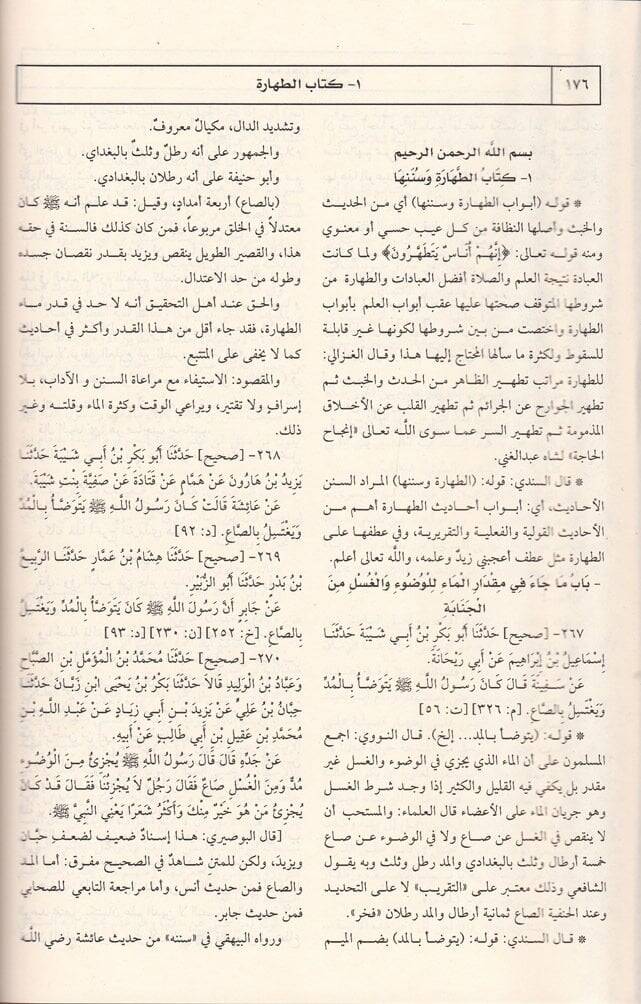 ١٧٦
١- كتاب الطهارة
بسم الله الرحمن الرحيم
١- كِتَابُ الطَّهَارَةِ وَسُنَنِهَا
* قوله (أبواب الطهارة وسننها) أي من الحديث
والخبث وأصلها النظافة من كل عيب حسي أو معنوي
ومنه قوله تعالى: ﴿إِنَّهُمْ أُنَاسٌ يَتَطَهَّرُونَ﴾ ولما كانت
العبادة نتيجة العلم والصلاة أفضل العبادات والطهارة من
شروطها المتوقف صحتها عليها عقب أبواب العلم بأبواب
الطهارة واختصت من بين شروطها لكونها غير قابلة
للسقوط ولكثرة ما سألها المحتاج إليها هذا وقال الغزالي:
للطهارة مراتب تطهير الظاهر من الحدث والخبث ثم
تطهير الجوارح عن الجرائم ثم تطهير القلب عن الأخلاق
المذمومة ثم تطهير السر عما سوى اللـه تعالى «إنجاح
الحاجة» لشاه عبدالغني.
* قال السندي: قوله: (الطهارة وسننها) المراد السنن
الأحاديث، أي: أبواب أحاديث الطهارة أهم من
الأحاديث القولية والفعلية والتقريرية، وفي عطفها على
الطهارة مثل عطف أعجبني زيدٌ وعلمه، والله تعالى أعلم.
- بَابُ مَا جَاءَ فِي مِقْدَارِ الْمَاءِ لِلْوُضُوءِ وَالْغُسْلِ مِنَ
الْجَنَابَةِ
٢٦٧- [صحيح] حَدَّثَنَا أَبُو بَكْرِ بْنُ أَبِي شَيْبَةَ حَدَّثَنَا
إِسْمَاعِيلُ بْنُ إِبْرَاهِيمَ عَنْ أَبِي رَيْحَانَةَ.
عَنْ سَفِينَةَ قَالَ كَانَ رَسُولُ اللَّهِ ﷺ يَتَوَضَّأُ بِالْمُدِّ
وَيَغْتَسِلُ بِالصَّاعِ. [م: ٣٢٦] [ت: ٥٦]
* قوله: (يتوضأ بالمد... إلخ). قال النووي: اجمع
المسلمون على أن الماء الذي يجزي في الوضوء والغسل غير
مقدر بل يكفي فيه القليل والكثير إذا وجد شرط الغسل
وهو جريان الماء على الأعضاء قال العلماء: والمستحب أن
لا ينقص في الغسل عن صاع ولا في الوضوء عن صاع
خمسة أرطال وثلث بالبغدادي والمد رطل وثلث وبه يقول
الشافعي وذلك معتبر على «التقريب» لا على التحديد
وعند الحنفية الصاع ثمانية أرطال والمد رطلان «فخر».
* قال السندي: قوله: (يتوضأ بالمد) بضم الميم
وتشديد الدال، مكيالٌ معروفٌ.
والجمهور على أنه رطلٌ وثلثٌ بالبغداي.
وأبو حنيفة على أنه رطلان بالبغدادي.
(بالصاع) أربعة أمدادٍ، وقيل: قد علم أنه ﷺ كان
معتدلاً في الخلق مربوعاً، فمن كان كذلك فالسنة في حقه
هذا، والقصير الطويل ينقص ويزيد بقدر نقصان جسده
وطوله من حد الاعتدال.
والحق عند أهل التحقيق أنه لا حد في قدر ماء
الطهارة، فقد جاء أقل من هذا القدر وأكثر في أحاديث
كما لا يخفى على المتتبع.
والمقصود: الاستيفاء مع مراعاة السنن و الآداب، بلا
إسرافٍ ولا تقتيرٍ، ويراعي الوقت وكثرة الماء وقلته وغير
ذلك.
٢٦٨- [صحيح] حَدَّثَنَا أَبُو بَكْرِ بْنُ أَبِي شَيْبَةَ حَدَّثَنَا
يَزِيدُ بْنُ هَارُونَ عَنْ هَمَّامٍ عَنْ قَتَادَةَ عَنْ صَفِيَّةَ بِنْتِ شَيْبَةَ.
عَنْ عَائِشَةَ قَالَتْ كَانَ رَسُولُ اللَّهِ ﷺ يَتَوَضَّأُ بِالْمُدِّ
وَيَغْتَسِلُ بِالصَّاعِ. [د: ٩٢]
٢٦٩- [صحيح] حَدَّثَنَا هِشَامُ بْنُ عَمَّارٍ حَدَّثَنَا الرَّبِيعُ
بْنُ بَدْرٍ حَدَّثَنَا أَبُو الزُّبَيْرِ.
عَنْ جَابِرٍ أَنَّ رَسُولَ اللَّهِ ﷺ كَانَ يَتَوَضَّأُ بِالْمُدِّ وَيَغْتَسِلُ
بِالصَّاعِ. [خ: ٢٥٢] [ن: ٢٣٠] [د: ٩٣]
٢٧٠- [صحيح] حَدَّثَنَا مُحَمَّدُ بْنُ الْمُؤَمَّلِ بْنِ الصَّبَّاحِ
وَعَبَّادُ بْنُ الْوَلِيدِ قَالَا حَدَّثَنَا بَكْرُ بْنُ يَحْيَى ابْنِ زَبَّانَ حَدَّثَنَا
حِبَّانُ بْنُ عَلِيٍّ عَنْ يَزِيدَ بْنِ أَبِي زِيَادٍ عَنْ عَبْدِ اللَّهِ بْنِ
مُحَمَّدِ بْنِ عَقِيلِ بْنِ أَبِي طَالِبٍ عَنْ أَبِيهِ.
عَنْ جَدِّهِ قَالَ قَالَ رَسُولُ اللَّهِ ﷺ يُجْزِئُ مِنَ الْوُضُوءِ
مُدٌّ وَمِنَ الْغُسْلِ صَاعٌ فَقَالَ رَجُلٌ لَا يُجْزِئُنَا فَقَالَ قَدْ كَانَ
يُجْزِئُ مَنْ هُوَ خَيْرٌ مِنْكَ وَأَكْثَرُ شَعَرًا يَعْنِي النَّبِيَّ ﷺ.
[قال البوصيري: هذا إسنادٌ ضعيف لضعفِ حبَّان
ويزيدَ، ولكن للمتن شاهدٌ في الصحيح مفرق: أما المد
والصاع فمن حديث أنس، وأما مراجعة التابعي للصحابي
فمن حديث جابر.
ورواه البيهقي في «سننه» من حديث عائشة رضي اللَّه